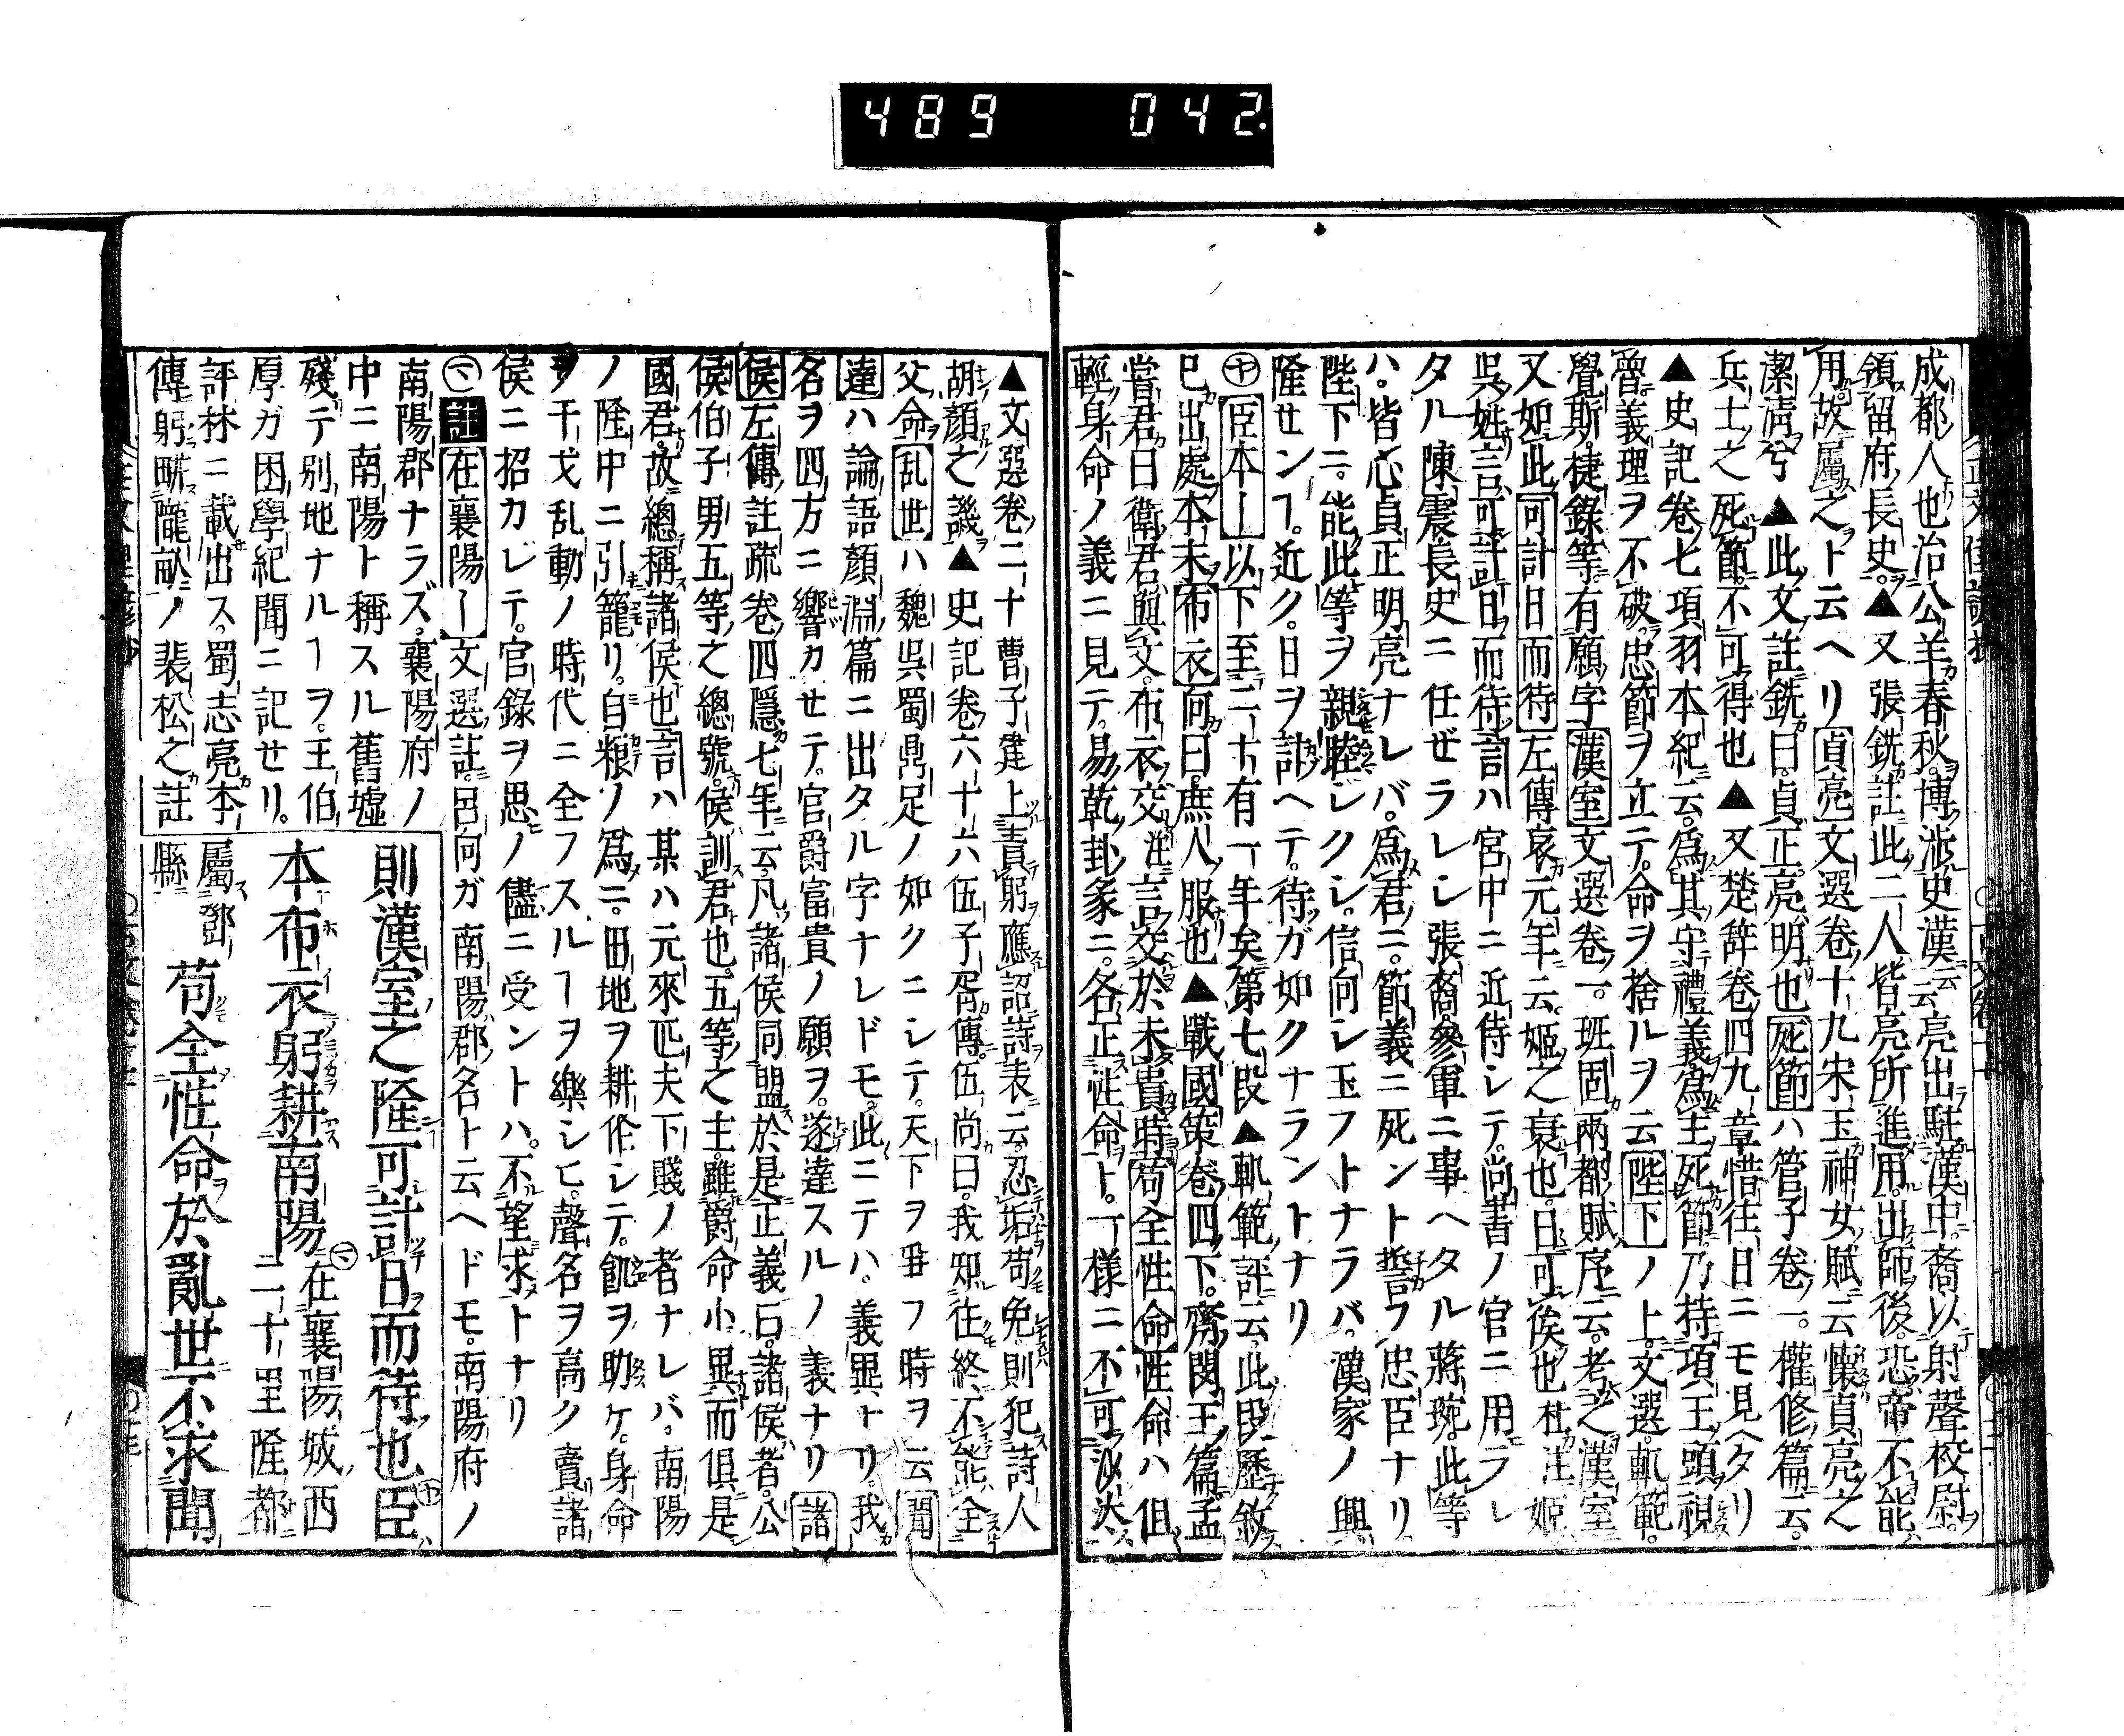 489 042.
成都人也治公羊春秋。博渉史漢云云亮出駐漢中。裔以射聲校尉。
領留府長史。▲又張銑註此二人皆亮所進用。出師後。恐帝不能
用。故屬之ト云ヘリ貞亮文選卷十九宋玉神女賦云懷貞亮之
潔淸兮▲此文註銑曰。貞正亮明也死節ハ管子卷一。權修篇云。
兵士之死節。不可得也▲又楚辞卷四九章惜往日ニモ見ヘタリ
▲史記卷七項羽本紀云。爲其守禮義爲主死節乃持項王頭視
魯。義理ヲ不破。忠節ヲ立テ。命ヲ捨ルヲ云陛下ノ上。文選。軌範。
覺斯。棲錄等有願字漢室文選卷一。班固兩都賦序云。考之漢室
又如此可計日而待左傳哀元年云。姬之衰也。日可俟也杜注姬
吳姓言可計日而待言ハ宮中ニ近侍シテ。尚書ノ官ニ用ラレ
タル陳震長史ニ任ゼラレシ張裔參軍ニ事ヘタル蔣琬。此等
ハ。皆心貞正明亮ナレバ。爲君ニ。節義ニ死ント誓フ忠臣ナリ
陛下ニ。能此等ヲ親睦シクシ。信向シ玉フトナラバ。漢家ノ興
隆センヿ。近ク。日ヲ計ヘテ。待ガ如クナラントナリ
十臣本―以下至二十有一年矣第七段▲軌範評云。此段歷敘
已出處本末布衣向曰。庶人服也▲戰國策卷四下。齊閔王篇。孟
嘗君曰衛君與文布衣交注言交於未貴時苟全性命性命ハ但
輕身命ノ義ニ見テ。易乾卦象ニ。各正性命ト。一樣ニ不可沙汰
▲文選卷二十曹子建上責躬應詔詩表云。忍垢苟免。則犯詩人
胡顏之譏▲史記卷六十六伍子胥傳。伍尚曰。我知往終不能全
父命乱世ハ魏吳蜀鼎足ノ如クニシテ。天下ヲ爭フ時ヲ云聞
達ハ論語顏淵篇ニ出タル字ナレドモ。此ニテハ。義異ナリ。我
名ヲ四方ニ響カセテ。官爵富貴ノ願ヲ。遂達スルノ義ナリ諸
侯左傳註疏卷四隱七年云凡諸侯同盟於是正義曰。諸侯者。公
侯伯子男五等之總號。侯訓君也。五等之主。雖爵命小異而俱是
國君。故總稱諸侯也言ハ某ハ元來匹夫下賤ノ者ナレバ。南陽
ノ隆中ニ引籠リ。自粮ノ爲ニ。田地ヲ耕作シテ。飢ヲ助ケ。身命
ヲ干戈乱動ノ時代ニ全フスルヿヲ樂シヒ。聲名ヲ高ク賣諸
侯ニ招カレテ。官錄ヲ思ノ儘ニ受ントハ。不望求トナリ
註在襄陽―文選註。呂向ガ南陽郡名ト云ヘドモ。南陽府ノ
南陽郡ナラズ。襄陽府ノ
中ニ南陽ト稱スル舊墟
殘テ別地ナルヿヲ。王伯
厚ガ困學紀聞ニ記セリ。
評林ニ載出ス。蜀志亮本
傳躬畊隴畝ノ裴松之註
則漢室之隆可計日而待也十臣
本布衣躬耕南陽在襄陽城西二十里隆都
屬鄧縣苟全性命於亂世不求聞